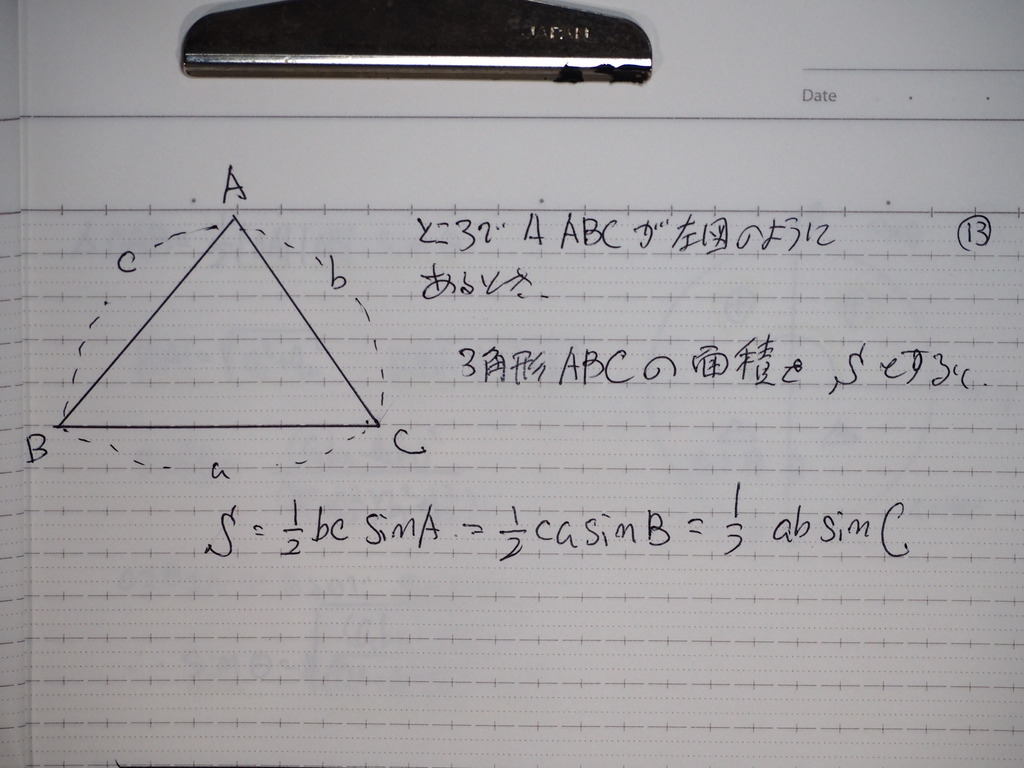 JAPAN
Date
A
c
b
ところで △ABCが左図のように ⑬
あるとき.
3角形ABCの面積をSとすると.
B
C
a
S = 1/2 bc sinA = 1/2 ca sinB = 1/2 ab sin C